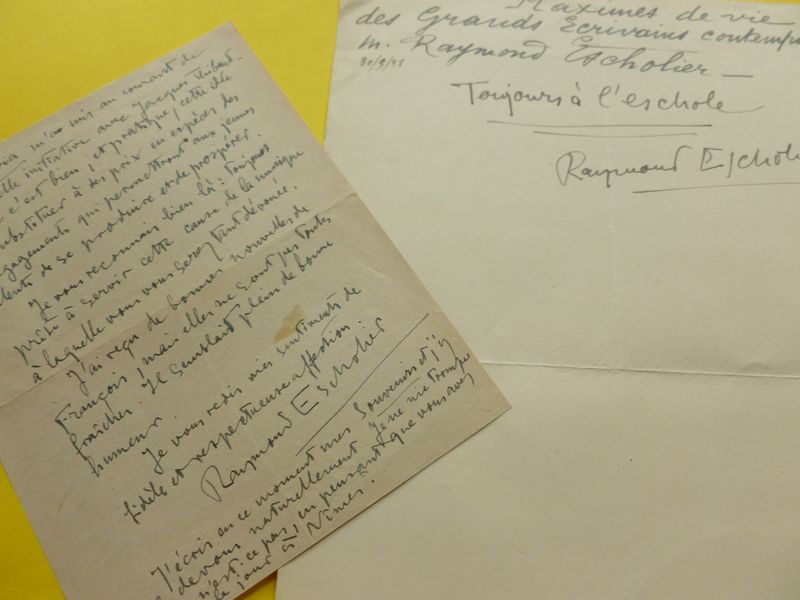 m'a mis au courant de
initiative avec Jacques Thibaut.
c'est bien, et pratique, cette idée
substituer à des prix en espèces des
engagements qui permettront aux jeunes
talents de se produire et de prospérer.
Je vous reconnais bien là : toujours
prête à servir cette cause de la musique
à laquelle vous vous serez tant dévouée.
J'ai reçu de bonnes nouvelles de
François, mais elles ne sont pas toutes
fraîches. Il semblait plein de bonne
humeur.
Je vous redis mes sentiments de
fidèle et respectueuse affection
Raymond Escholier
J'écris en ce moment mes Souvenirs et j'y
de vous naturellement. Je ne me trompe
n'est-ce pas, en pensant que vous avez
le jour à Nîmes.
Maximes de vie
des Grands Écrivains contemp
M. Raymond Escholier —
Toujours à l'eschole
Raymond Eschol